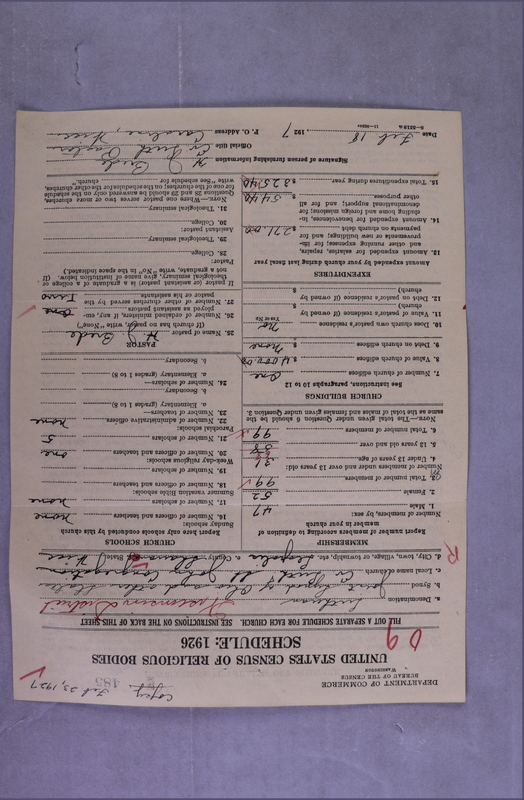 Copy
Feb 23, 1927
485
DEPARTMENT OF COMMERCE
BUREAU OF THE CENSUS
WASHINGTON
UNITED STATES CENSUS OF RELIGIOUS BODIES
SCHEDULE: 1926
FILL OUT A SEPARATE SCHEDULE FOR EACH CHURCH. SEE INSTRUCTIONS ON THE BACK OF THIS SHEET
a. Denomination Lutheran
b. Synod Joint Synod of Ohio and other States
c. Local name of church Ev. Luth. Congregation
d. City, town, village, or township, etc. Leopolis e. County Shawano State Wisc
MEMBERSHIP
Report number of members according to definition of member in your church
Number of members, by sex:
1. Male 47
2. Female 52
Total number of members. 99
Number of members under and over 13 years old:
4. Under 13 years of age
5. 13 years old and over
6. Total number of members 99
NOTE.—The total given under question 6 should be the same as the total of males and females given under question 3.
CHURCH BUILDINGS
See instructions, paragraphs 10 to 12
7. Number of church edifices One
8. Value of church edifices $ 4000.00
9. Debt on church edifices $ None
10. Does church own pastor's residence No
Yes or No
11. Value of pastor's residence (if owned by church) $
12. Debt on pastor's residence (if owned by church) $
EXPENDITURES
Amount expended by your church during last fiscal year
13. Amount expended for salaries, repairs, and other running expenses; for improvements or new buildings; and for payments on church debt $ 271.00
14. Amount expended for benevolences, including home and foreign missions; for denominational support; and for all other purposes $ 54.40
15. Total expenditures during year $ 325.40
CHURCH SCHOOLS
Report here only schools conducted by this church
Sunday schools:
16. Number of officers and teachers none
17. Number of scholars none
Summer vacation Bible schools:
18. Number of officers and teachers
19. Number of scholars
Week-day religious schools:
20. Number of officers and teachers one
21. Number of scholars 5
Parochial schools:
22. Number of administrative officers none
23. Number of teachers—
a. Elementary (grades 1 to 8)
b. Secondary
24. Number of scholars—
a. Elementary (grades 1 to 8)
b. Secondary
PASTOR
25. Name of pastor H. J. Brede
(If church has no pastor, write "None")
26. Number of ordained ministers, if any, employed as assistant pastors
27. Number of other churches served by the pastor or his assistants
If pastor or assistant pastor is a graduate of a college or theological seminary, give name of institution below. (If not a graduate, write "No" in the space indicated.)
Pastor:
28. College
29. Theological seminary
Assistant pastor:
30. College
31. Theological seminary
NOTE.—Where one pastor serves two or more churches, Questions 25 and 29 should be answered only on the schedule for one of the churches; on the schedules for the other churches, write "See schedule for church."
Signature of person furnishing information H. J. Brede
Official title Ev. Luth. Pastor
Date Feb 18, 1927 P. O. Address Caroline, Wisc